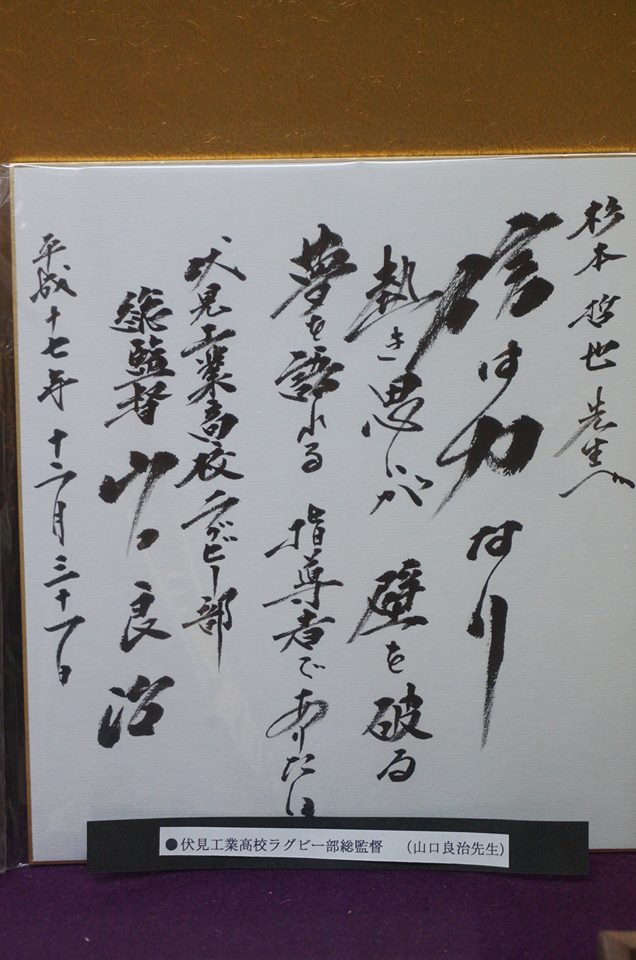 杉本哲世先生へ
信は力なり
熱き思いが 壁を破る
夢を語れる 指導者でありたい
伏見工業高校ラグビー部
総監督 山口良治
平成十七年 十二月三十一日
●伏見工業高校ラグビー部総監督　（山口良治先生）